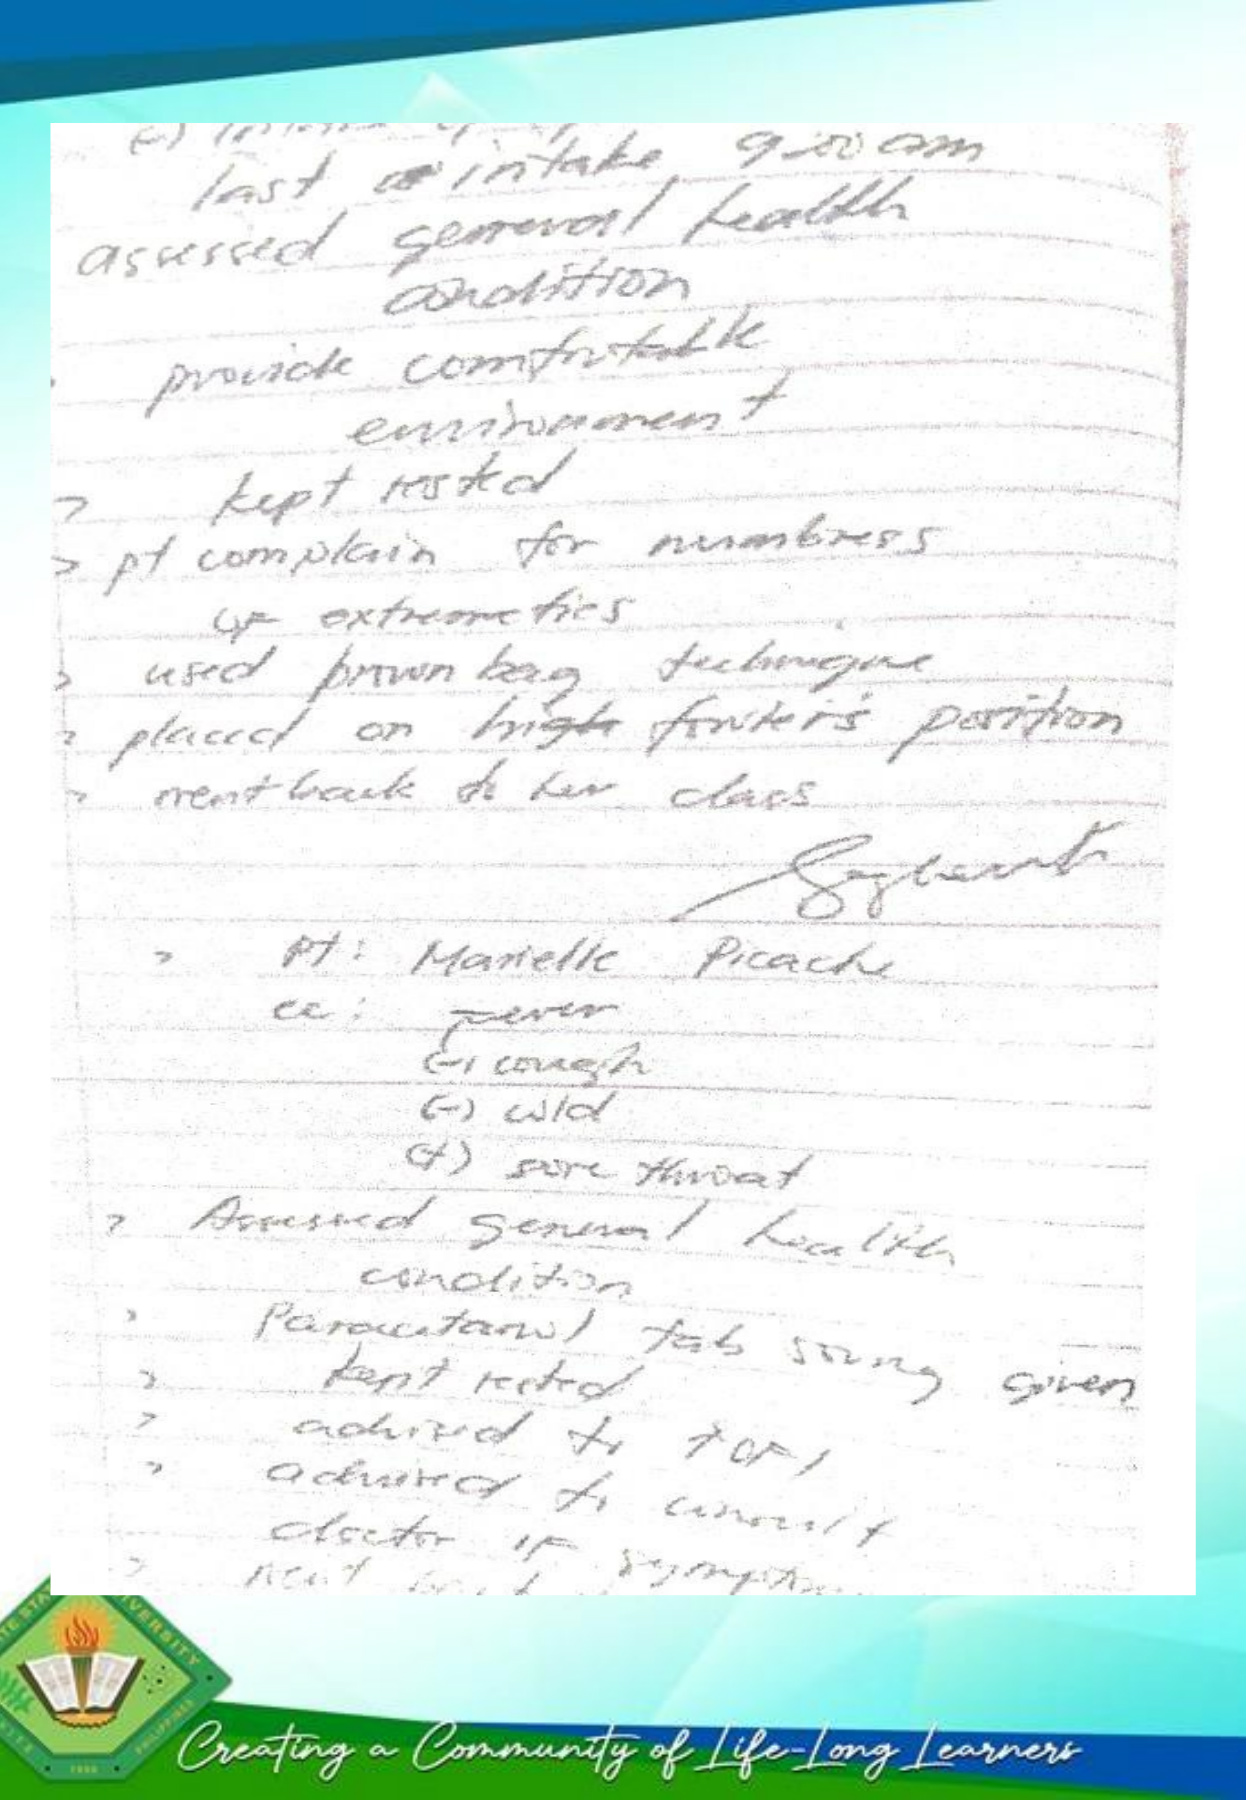 last intake 9:00 am
assessed general health
condition
provide comfortable
environment
> kept rested
> pt complain for numbness
of extremeties
> used brown bag technique
> placed on high fowler's position
> went back to her class
> Pt: Marielle Picache
cc: fever
(-) cough
(-) cold
(+) sore throat
> Assessed general health
condition
> Paracetamol tab 500mg given
> kept rested
> advised to ↑ OFI
> advised to consult
doctor if symptom
> went
Creating a Community of Life-Long Learners